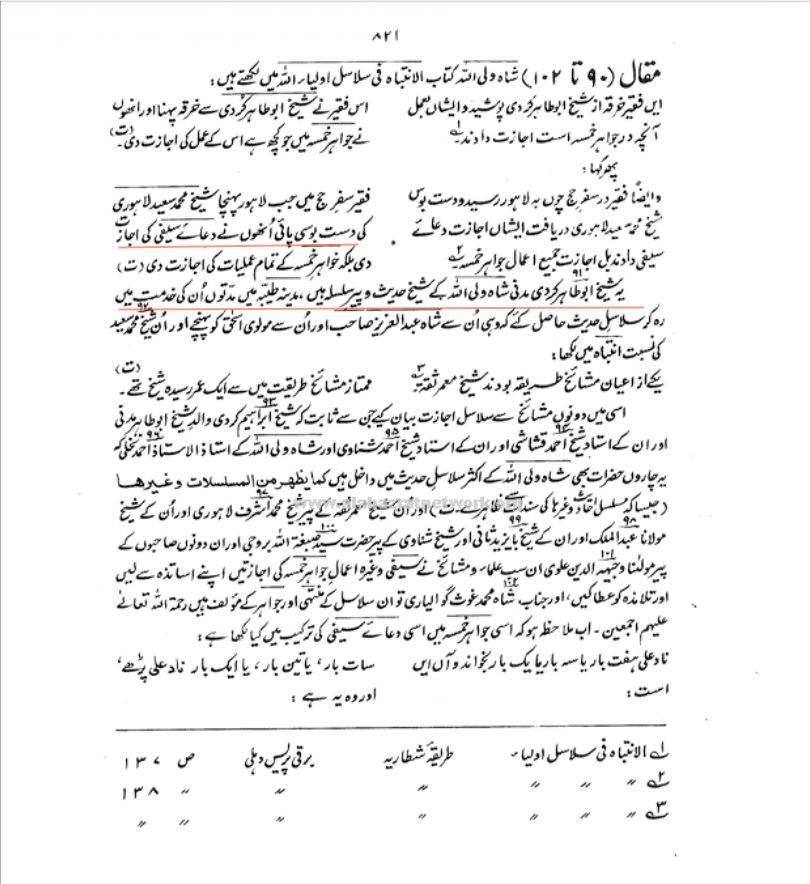 ۸۲۱
مقال (۹۰ تا ۱۰۲) شاہ ولی اللہ کتاب الانتباہ فی سلاسل اولیاء اللہ میں لکھتے ہیں:
ایں فقیر خرقہ از شیخ ابوطاہر کردی پوشید و ایشاں بعمل
آنچہ در جواہر خمسہ است اجازت دادند ۱؎
اس فقیر نے شیخ ابوطاہر کُردی سے خرقہ پہنا اور انھوں
نے جواہر خمسہ میں جو کچھ ہے اس کے عمل کی اجازت دی۔ (ت)
پھر کہا:
وایضاً فقیر در سفر حج چوں بہ لاہور رسید و دست بوس
شیخ محمد سعید لاہوری دریافت ایشاں اجازت دعائے
سیفی دادند بل اجازت جمیع اعمال جواہر خمسہ ۲؎
فقیر سفرِ حج میں جب لاہور پہنچا شیخ محمد سعید لاہوری
کی دست بوسی پائی اُنھوں نے دعائے سیفی کی اجازت
دی بلکہ جواہر خمسہ کے تمام عملیات کی اجازت دی (ت)
یہ شیخ ابوطاہر کردی مدنی شاہ ولی اللہ کے شیخ حدیث و پیر سلسلہ ہیں، مدینہ طیبہ میں مدتوں اُن کی خدمت میں ۹۱
رہ کر سلاسلِ حدیث حاصل کئے کہ وہی اُن سے شاہ عبدالعزیز صاحب اور اُن سے مولوی اسحٰق کو پہنچے اور اُن شیخ محمد سعید ۹۲
کی نسبت انتباہ میں لکھا:
یکے از اعیان مشائخ طریقہ بودند شیخ معمر ثقہ ۳؎
ممتاز مشائخ طریقت میں سے ایک عمر رسیدہ شیخ تھے۔ (ت)
اسی میں دونوں مشائخ سے سلاسل اجازت بیان کئے جن سے ثابت کہ شیخ ابراہیم کردی والدِ شیخ ابوطاہر مدنی ۹۳
اور ان کے استاد شیخ احمد قشاشی اور ان کے استاد شیخ احمد شناوی اور شاہ ولی اللہ کے استاذ الاستاذ احمد نخلی کہ ۹۴ ۹۵ ۹۶
یہ چاروں حضرات بھی شاہ ولی اللہ کے اکثر سلاسلِ حدیث میں داخل ہیں کما یظہر من المسلسلات وغیرھا
(جیسا کہ مسلسل وغیرہا کی سند سے ظاہر ہے۔ ت) اور ان شیخ معمر ثقہ کے پیر شیخ محمد اشرف لاہوری اور اُن کے شیخ ۹۷
مولانا عبدالملک اور ان کے شیخ بایزید ثانی اور شیخ شناوی کے پیر حضرت سید صبغۃ اللہ بروجی اور ان دونوں صاحبوں کے ۹۸ ۹۹ ۱۰۰
پیر مولٰنا وجیہہ الدین علوی ان سب علماء و مشائخ نے سیفی وغیرہ اعمال جواہر خمسہ کی اجازتیں اپنے اساتذہ سے لیں ۱۰۱
اور تلامذہ کو عطا کیں، اور جناب شاہ محمد غوث گوالیاری تو ان سلاسل کے منتہٰی اور جواہر کے مؤلف ہیں رحمۃ اللہ تعالٰے ۱۰۲
علیہم اجمعین۔ اب ملاحظہ ہو کہ اسی جواہر خمسہ میں اسی دعائے سیفی کی ترکیب میں کیا لکھا ہے:
نادِ علی ہفت بار یا سہ بار یا یک بار بخواند و آں ایں
است:
سات بار، یا تین بار، یا ایک بار نادِ علی پڑھے،
اور وہ یہ ہے:
۱؎ الانتباہ فی سلاسل اولیاء طریقۂ شطاریہ برقی پریس دہلی ص ۱۳۷
۲؎ 〃 〃 〃 〃 〃 〃 ۱۳۸
۳؎ 〃 〃 〃 〃 〃 〃 〃